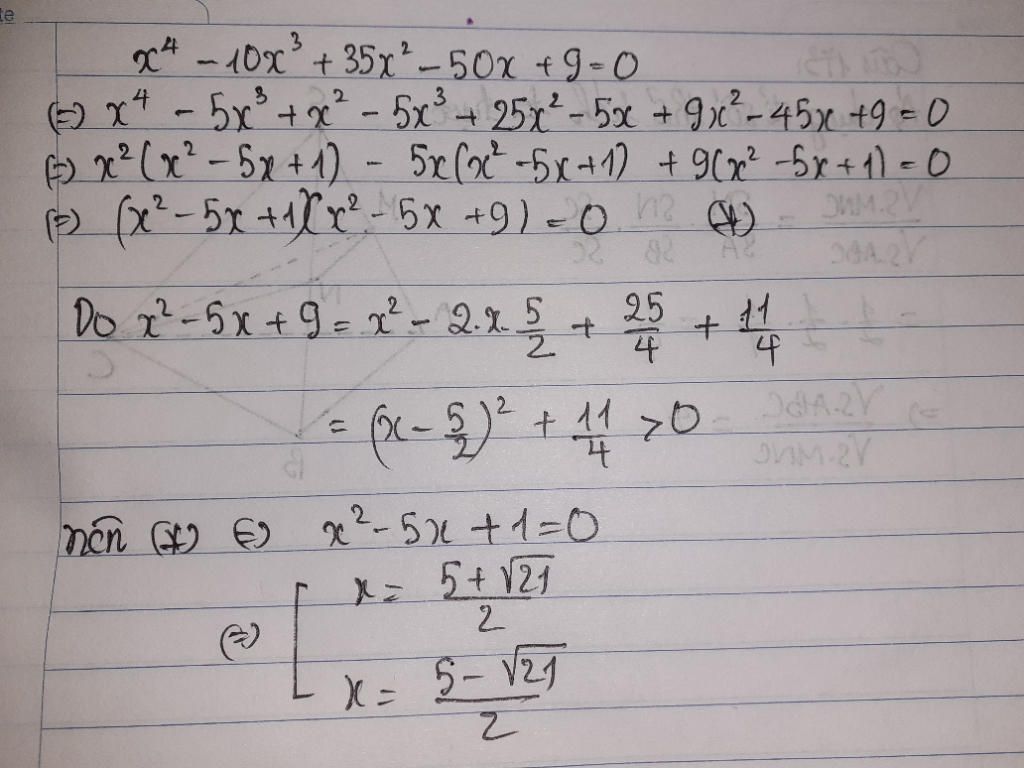 x⁴ - 10x³ + 35x² - 50x + 9 = 0
(=) x⁴ - 5x³ + x² - 5x³ + 25x² - 5x + 9x² - 45x + 9 = 0
(=) x²(x² - 5x + 1) - 5x(x² - 5x + 1) + 9(x² - 5x + 1) = 0
(=) (x² - 5x + 1)(x² - 5x + 9) = 0 (*)
Do x² - 5x + 9 = x² - 2.x.5/2 + 25/4 + 11/4
= (x - 5/2)² + 11/4 > 0
nên (*) (=) x² - 5x + 1 = 0
(=) [ x = (5 + √21)/2
x = (5 - √21)/2